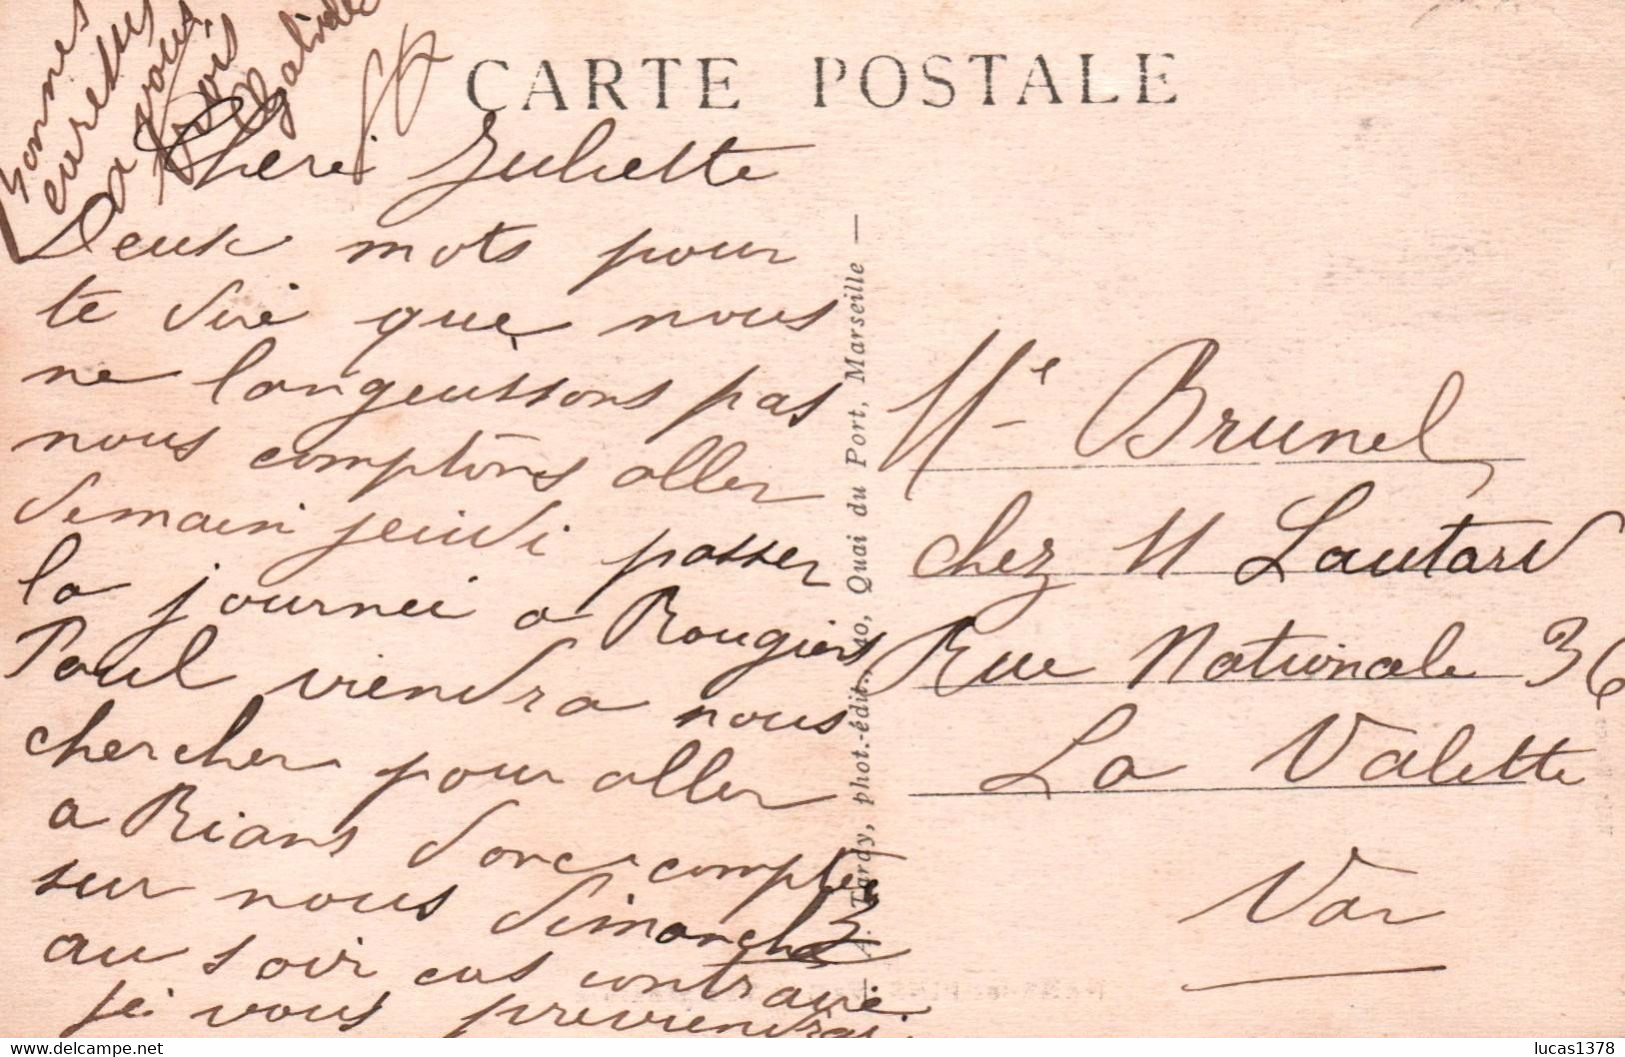 CARTE POSTALE
Bonnes
caresses
a vous
trois
Cheri Juliette
Deux mots pour
te dire que nous
ne langeussons pas
nous comptons aller
demain jeudi passer
la journei a Rougiers
Paul viendra nous
chercher pour aller
a Rians donc compter
sur nous dimanche
au soir cas contraire
je vous previendrai
A. Tardy, phot.-édit., 40, Quai du Port, Marseille —
Me Brunel
chez M Lautard
Rue Nationale 36
La Valette
Var
delcampe.net
lucas1378